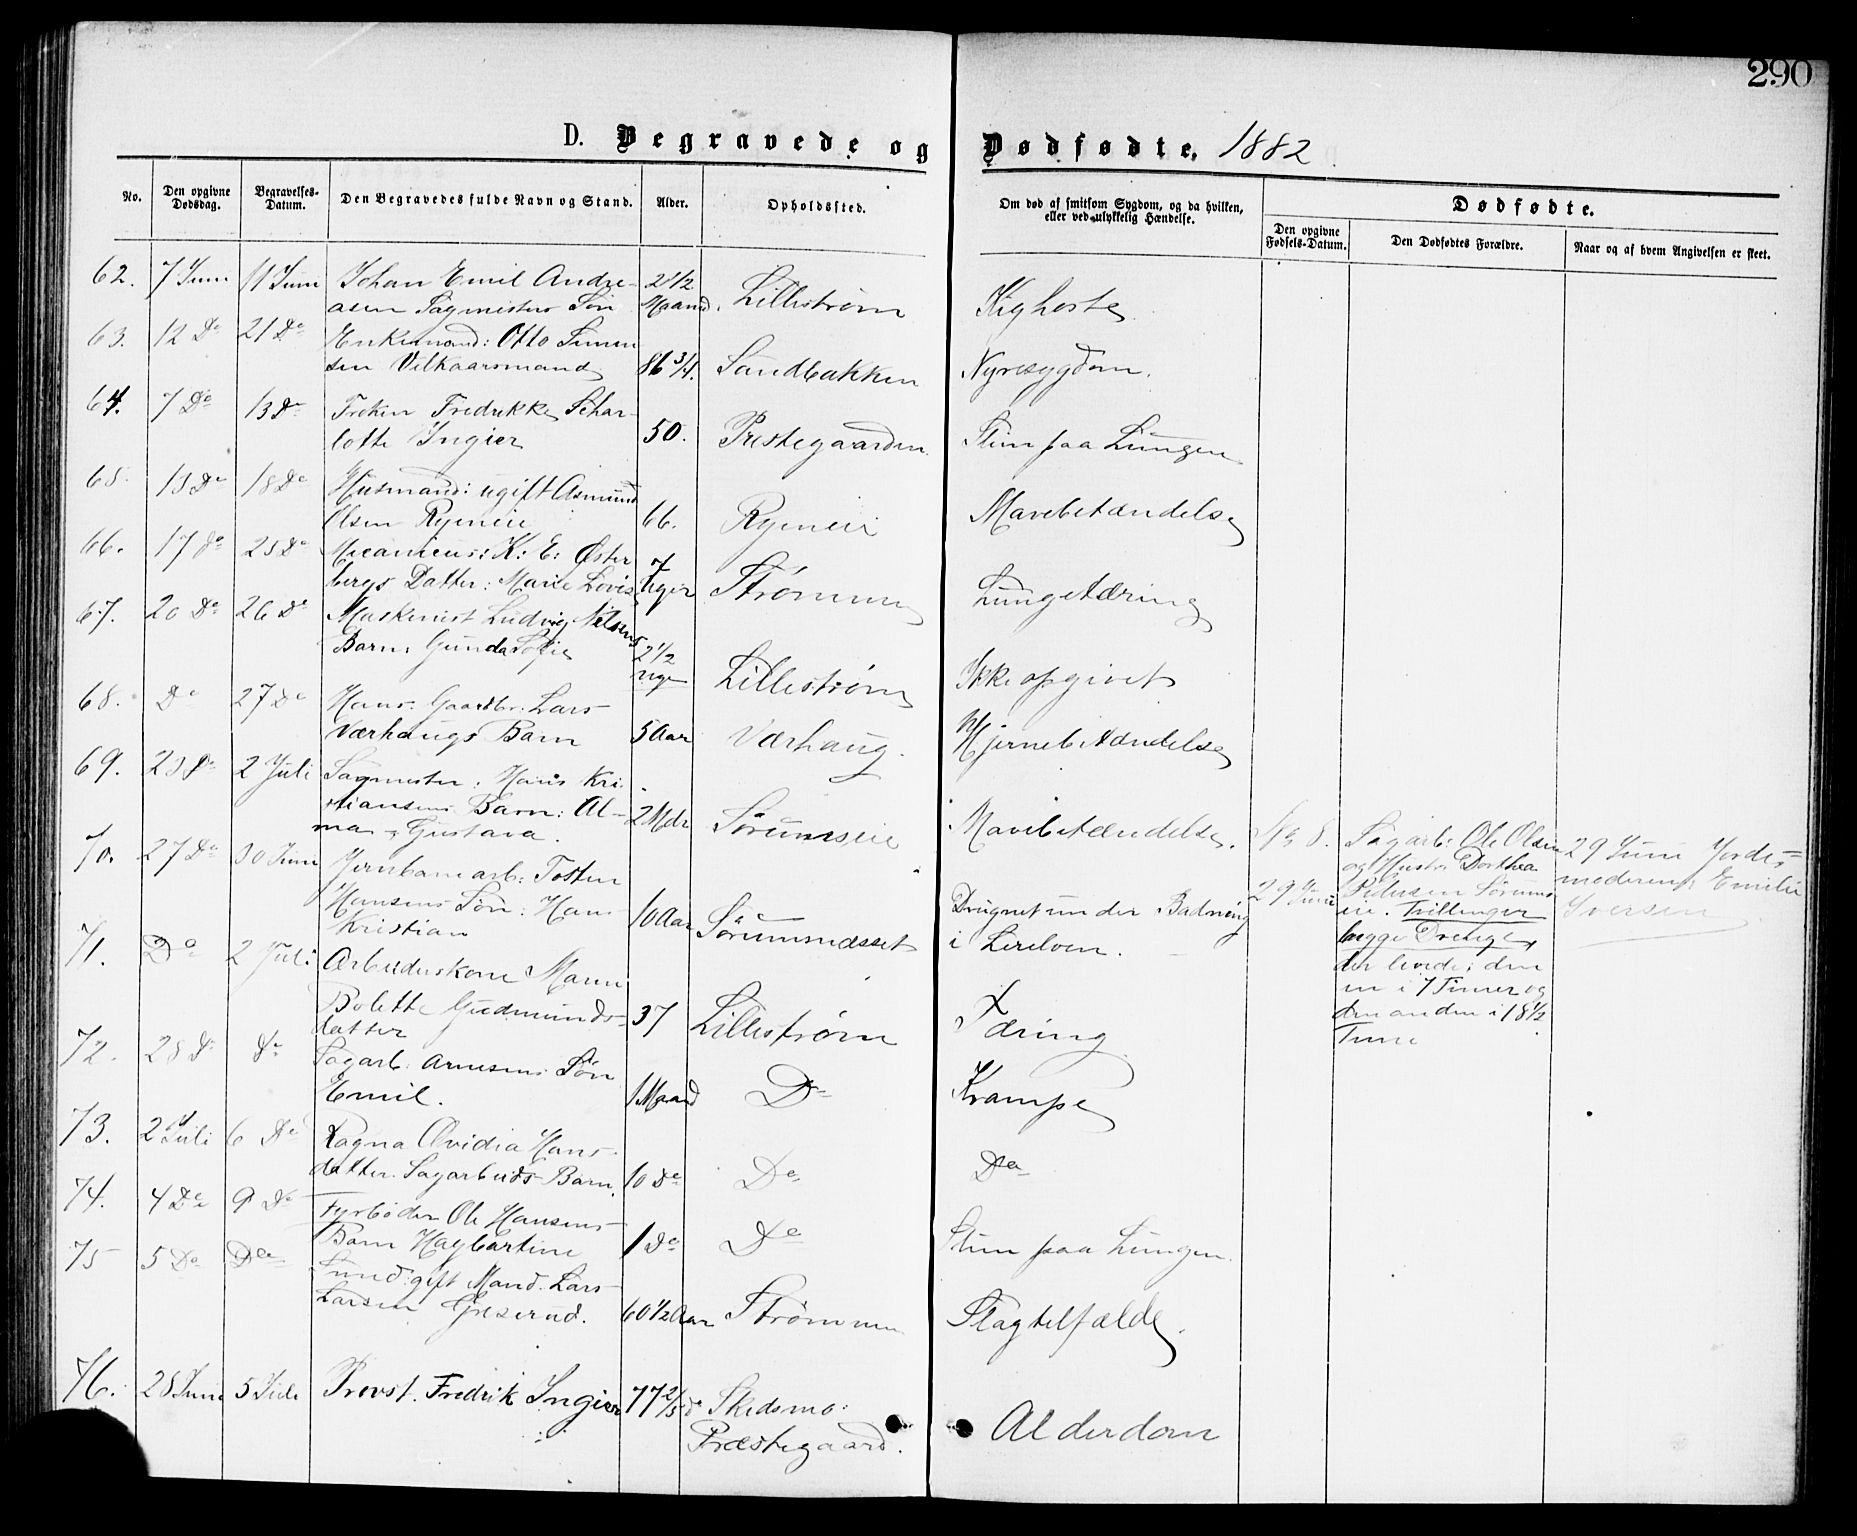 290
D. Begravede og Dødfødte. 1882
No.
Den opgivne Dødsdag.
Begravelses-Datum.
Den Begravedes fulde Navn og Stand.
Alder.
Opholdssted.
Om død af smitsom Sygdom, og da hvilken, eller ved ulykkelig Hændelse.
Dødfødte.
Den opgivne Fødsels-Datum.
Den Dødfødtes Forældre.
Naar og af hvem Angivelsen er skeet.
62. 7 Juni 11 Juni Johan Emil Andre-
asen Sagmesters Søn 2 1/2 Maaned. Lillestrøm Kighoste
63. 12 Do 21 Do Enkemand: Otto Simen
sen Vilkaarsmand 86 3/4. Sandbakken Nyresygdom.
64. 7 Do 13 Do Frøken Fredrikke Schar-
lotte Ingier 50. Prestegaarden Slim paa Lungen
65. 13 Do 18 Do Husmand: ugift Asmund
Olsen Ryeneie 66. Ryeneie Mavebetændelse
66. 17 Do 25 Do Mecanicus: K: E: Øster
bergs Datter: Marie Lovise 7 Uger Strømmen Lungetæring
67. 20 Do 26 Do Maskinist Ludvig Nilsens
Barn: Gunda Sofie 2 1/2 Uge Lillestrøm Ikke opgivet
68. Do 27 Do Hans: Gaardbr: Lars
Værhaugs Barn 5 Aar Værhaug. Hjernebetændelse
69. 23 Do 2 Juli Sagmester. Hans Kri-
stiansens Barn: Al-
ma Gustava. 2 Mdr Sørumseie Mavebetændelse.
70. 27 Do 30 Juni Jernbanearb: Tosten
Hansens Søn: Hans
Kristian 10 Aar Sørumsnæsset Drugnet under Badning
i Lerelven.
No 8.
29 Juni
Sagarb: Ole Olsen
og Hustru Dorthea
Pedersen Sørums
eie. Tvillinger
begge Drenge,
der levede; den
ene i 7 Timer og
den anden i 18 1/2
Time
29 Juni Jorde-
moderen: Emilie
Iversen
71. Do 2 Juli Arbeiderskone Maren
Bolette Gudmunds-
datter 37 Lillestrøm Tæring
72. 28 Do Do Sagarb: Arnesens Søn
Emil. 1 Maaned Do Krampe
73. 2 Juli 6 Do Ragna Ovidia Hans
datter. Sagarbeids Barn. 10 Do Do Do
74. 4 Do 9 Do Fyrbøder Ole Hansens
Barn Hagbartine 1 Do Do Slim paa Lungen.
75 5 Do Do gift Mand. Lars
Larsen 60 1/2 Aar Strømmen Slagtilfælde.
76. 28 Juni 5 Juli Provst. Fredrik Ingier 77 2/5 do Skedsmo:
Præstegaard. Alderdom